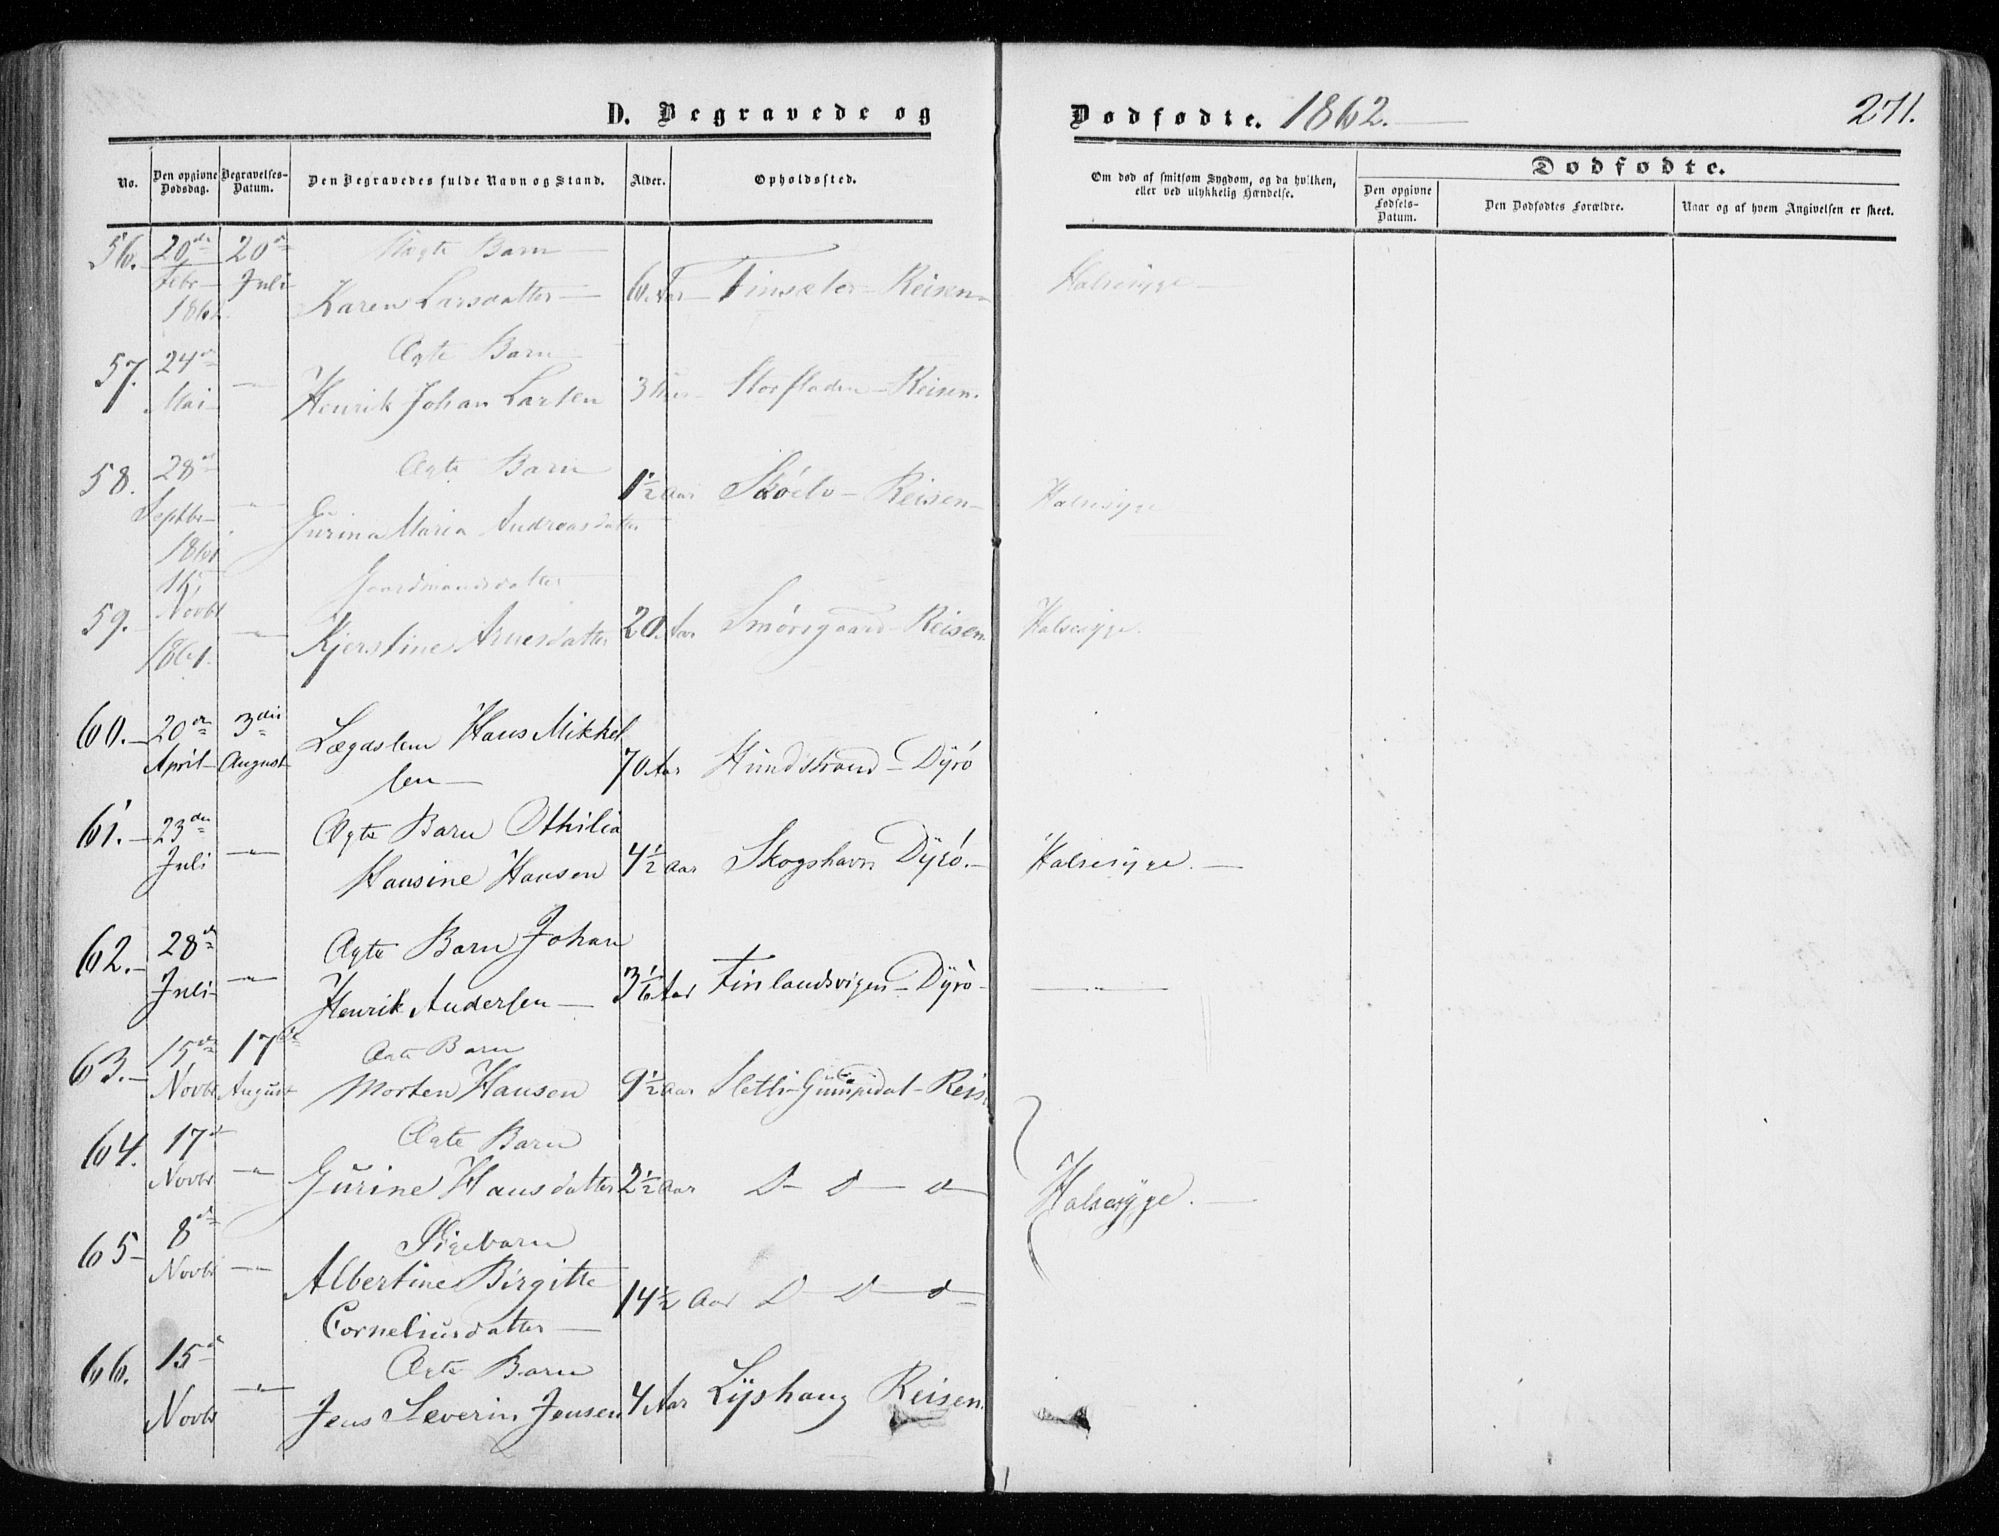 D. Begravede og
Dødfødte. 1862.
271.
No.
Den opgivne Dødsdag.
Begravelses-Datum.
Den Begravedes fulde Navn og Stand.
Alder.
Opholdssted.
Om død af smitsom Sygdom, og da hvilken, eller ved ulykkelig Hændelse.
Dødfødte.
Den opgivne Fødsels-Datum.
Den Dødfødtes Forældre.
Naar og af hvem Angivelsen er skeet.
56. 20de Febr 20de Juli
Ægte Barn
Karen Larsdatter 6 Aar Finsæter Reisen
Halsesyge
57. 24de Mai "
Ægte Barn
Henrik Johan Larsen 3 Aar Storfladen Reisen.
58. 28de Septbr 1861 "
Ægte Barn
Gurina Maria Andreasdatter 1½ Aar Skøelv Reisen
Halsesyge
59. Novbr 1861. "
Gaardmandsdatter
Kjerstine Arnesdatter 20 Aar Smørsgaard Reisen
Halsesyge.
60. 20de April 3die August
Lægdslem Hans Mikkel
sen 70 Aar Hundstrand Dyrø
61. 23de Juli "
Ægte Barn Othilia
Hansine Hansen 4½ Aar Skogshavn Dyrø.
Halsesyge.
62. 28de Juli "
Ægte Barn Johan
Henrik Andersen 3 1/6 Aar Finlandsvigen Dyrø
"
63. 15de Novbr 17de August
Ægte Barn
Morten Hansen 9½ Aar Sletli Reis
64. 17de Novbr "
Ægte Barn
Gurine Hansdatter 2½ Aar D d d
Halsesyge.
65 8de Novbr "
Pigebarn
Albertine Birgitte
Corneliusdatter 14½ Aar D d d
66. 15de Novbr "
Ægte Barn
Jens Severin Jensen 4 Aar Lyshaug Reisen.